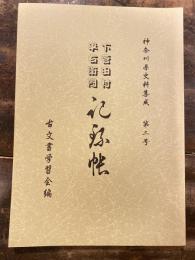 神奈川県史料集成　第二号
下菅田村
米右衛門
記録帳
古文書学習会編